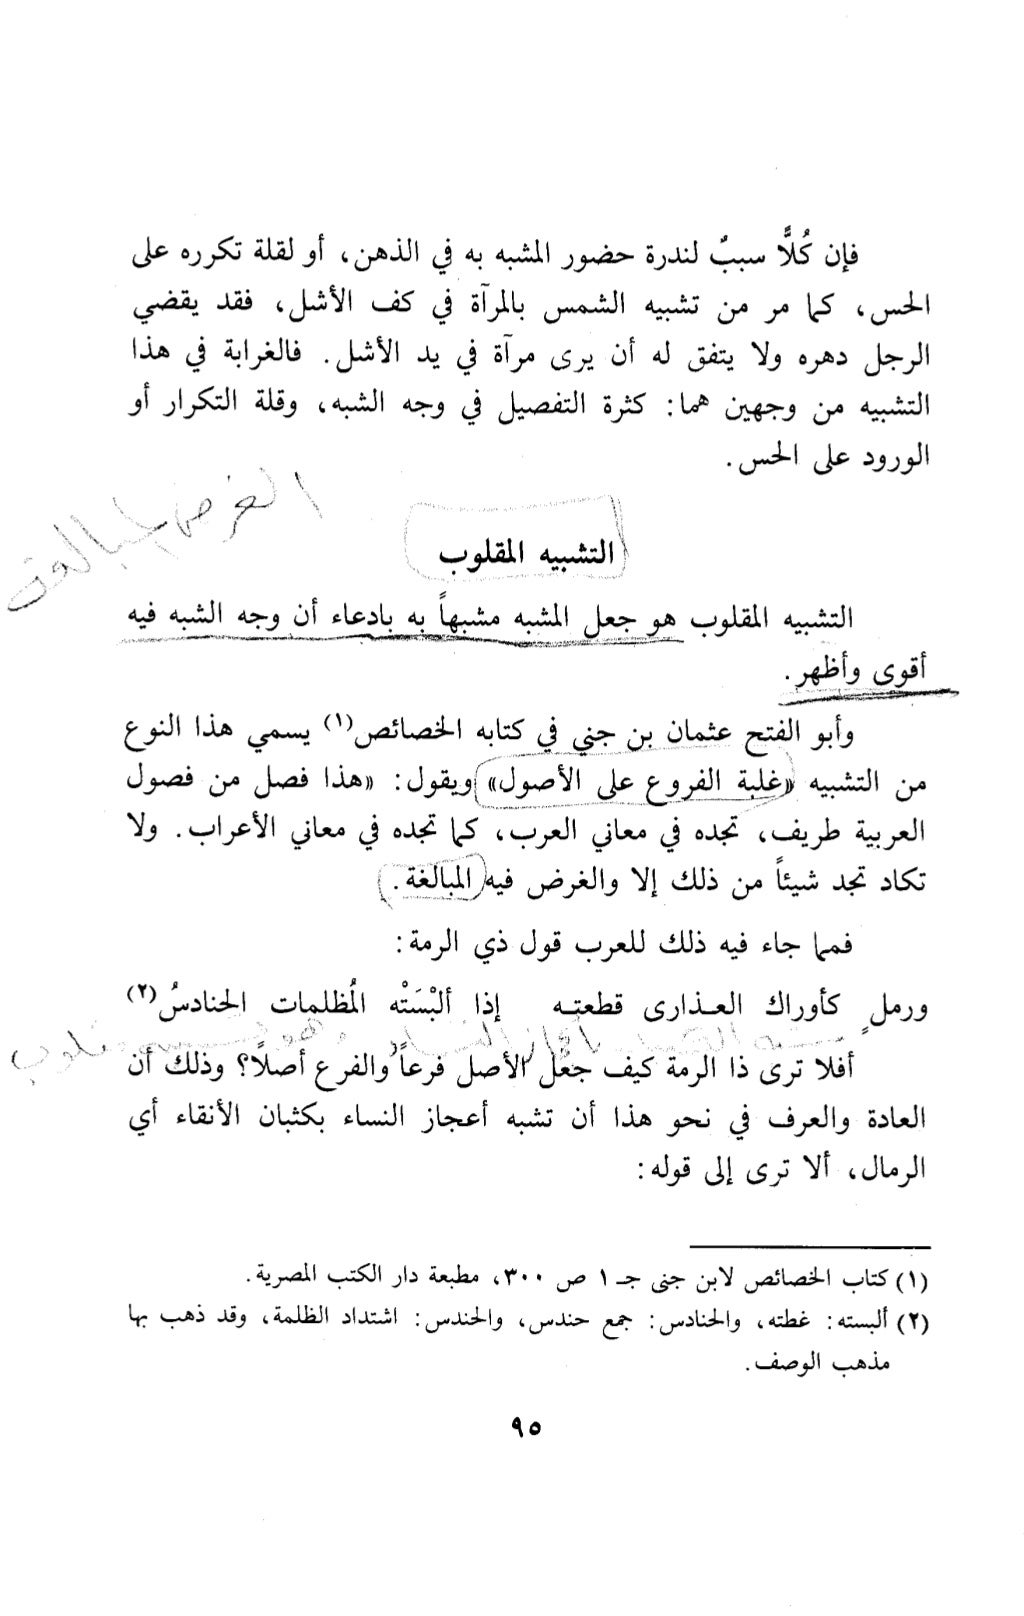 فإن كُلًّا سببٌ لندرة حضور المشبه به في الذهن، أو لقلة تكرره على
الحس، كما مر من تشبيه الشمس بالمرآة في كف الأشل، فقد يقضي
الرجل دهره ولا يتفق له أن يرى مرآة في يد الأشل. فالغرابة في هذا
التشبيه من وجهين هما: كثرة التفصيل في وجه الشبه، وقلة التكرار أو
الورود على الحس.
الغرض المبالغة
التشبيه المقلوب
التشبيه المقلوب هو جعل المشبه مشبهاً به بادعاء أن وجه الشبه فيه
أقوى وأظهر.
وأبو الفتح عثمان بن جني في كتابه الخصائص(١) يسمي هذا النوع
من التشبيه «غلبة الفروع على الأصول» ويقول: «هذا فصل من فصول
العربية طريف، تجده في معاني العرب، كما تجده في معاني الأعراب. ولا
تكاد تجد شيئاً من ذلك إلا والغرض فيه المبالغة.
فمما جاء فيه ذلك للعرب قول ذي الرمة:
ورملٍ كأوراك العـذارى قطعتـه إذا ألبْسَتْه المُظلمات الحنادسُ(٢)
وهو تشبيه مقلوب
أفلا ترى ذا الرمة كيف جعل الأصل فرعاً والفرع أصلًا؟ وذلك أن
العادة والعرف في نحو هذا أن تشبه أعجاز النساء بكثبان الأنقاء أي
الرمال، ألا ترى إلى قوله:
(١) كتاب الخصائص لابن جنى جـ ١ ص ٣٠٠، مطبعة دار الكتب المصرية.
(٢) ألبسته: غطته، والحنادس: جمع حندس، والحندس: اشتداد الظلمة، وقد ذهب بها
مذهب الوصف.
٩٥